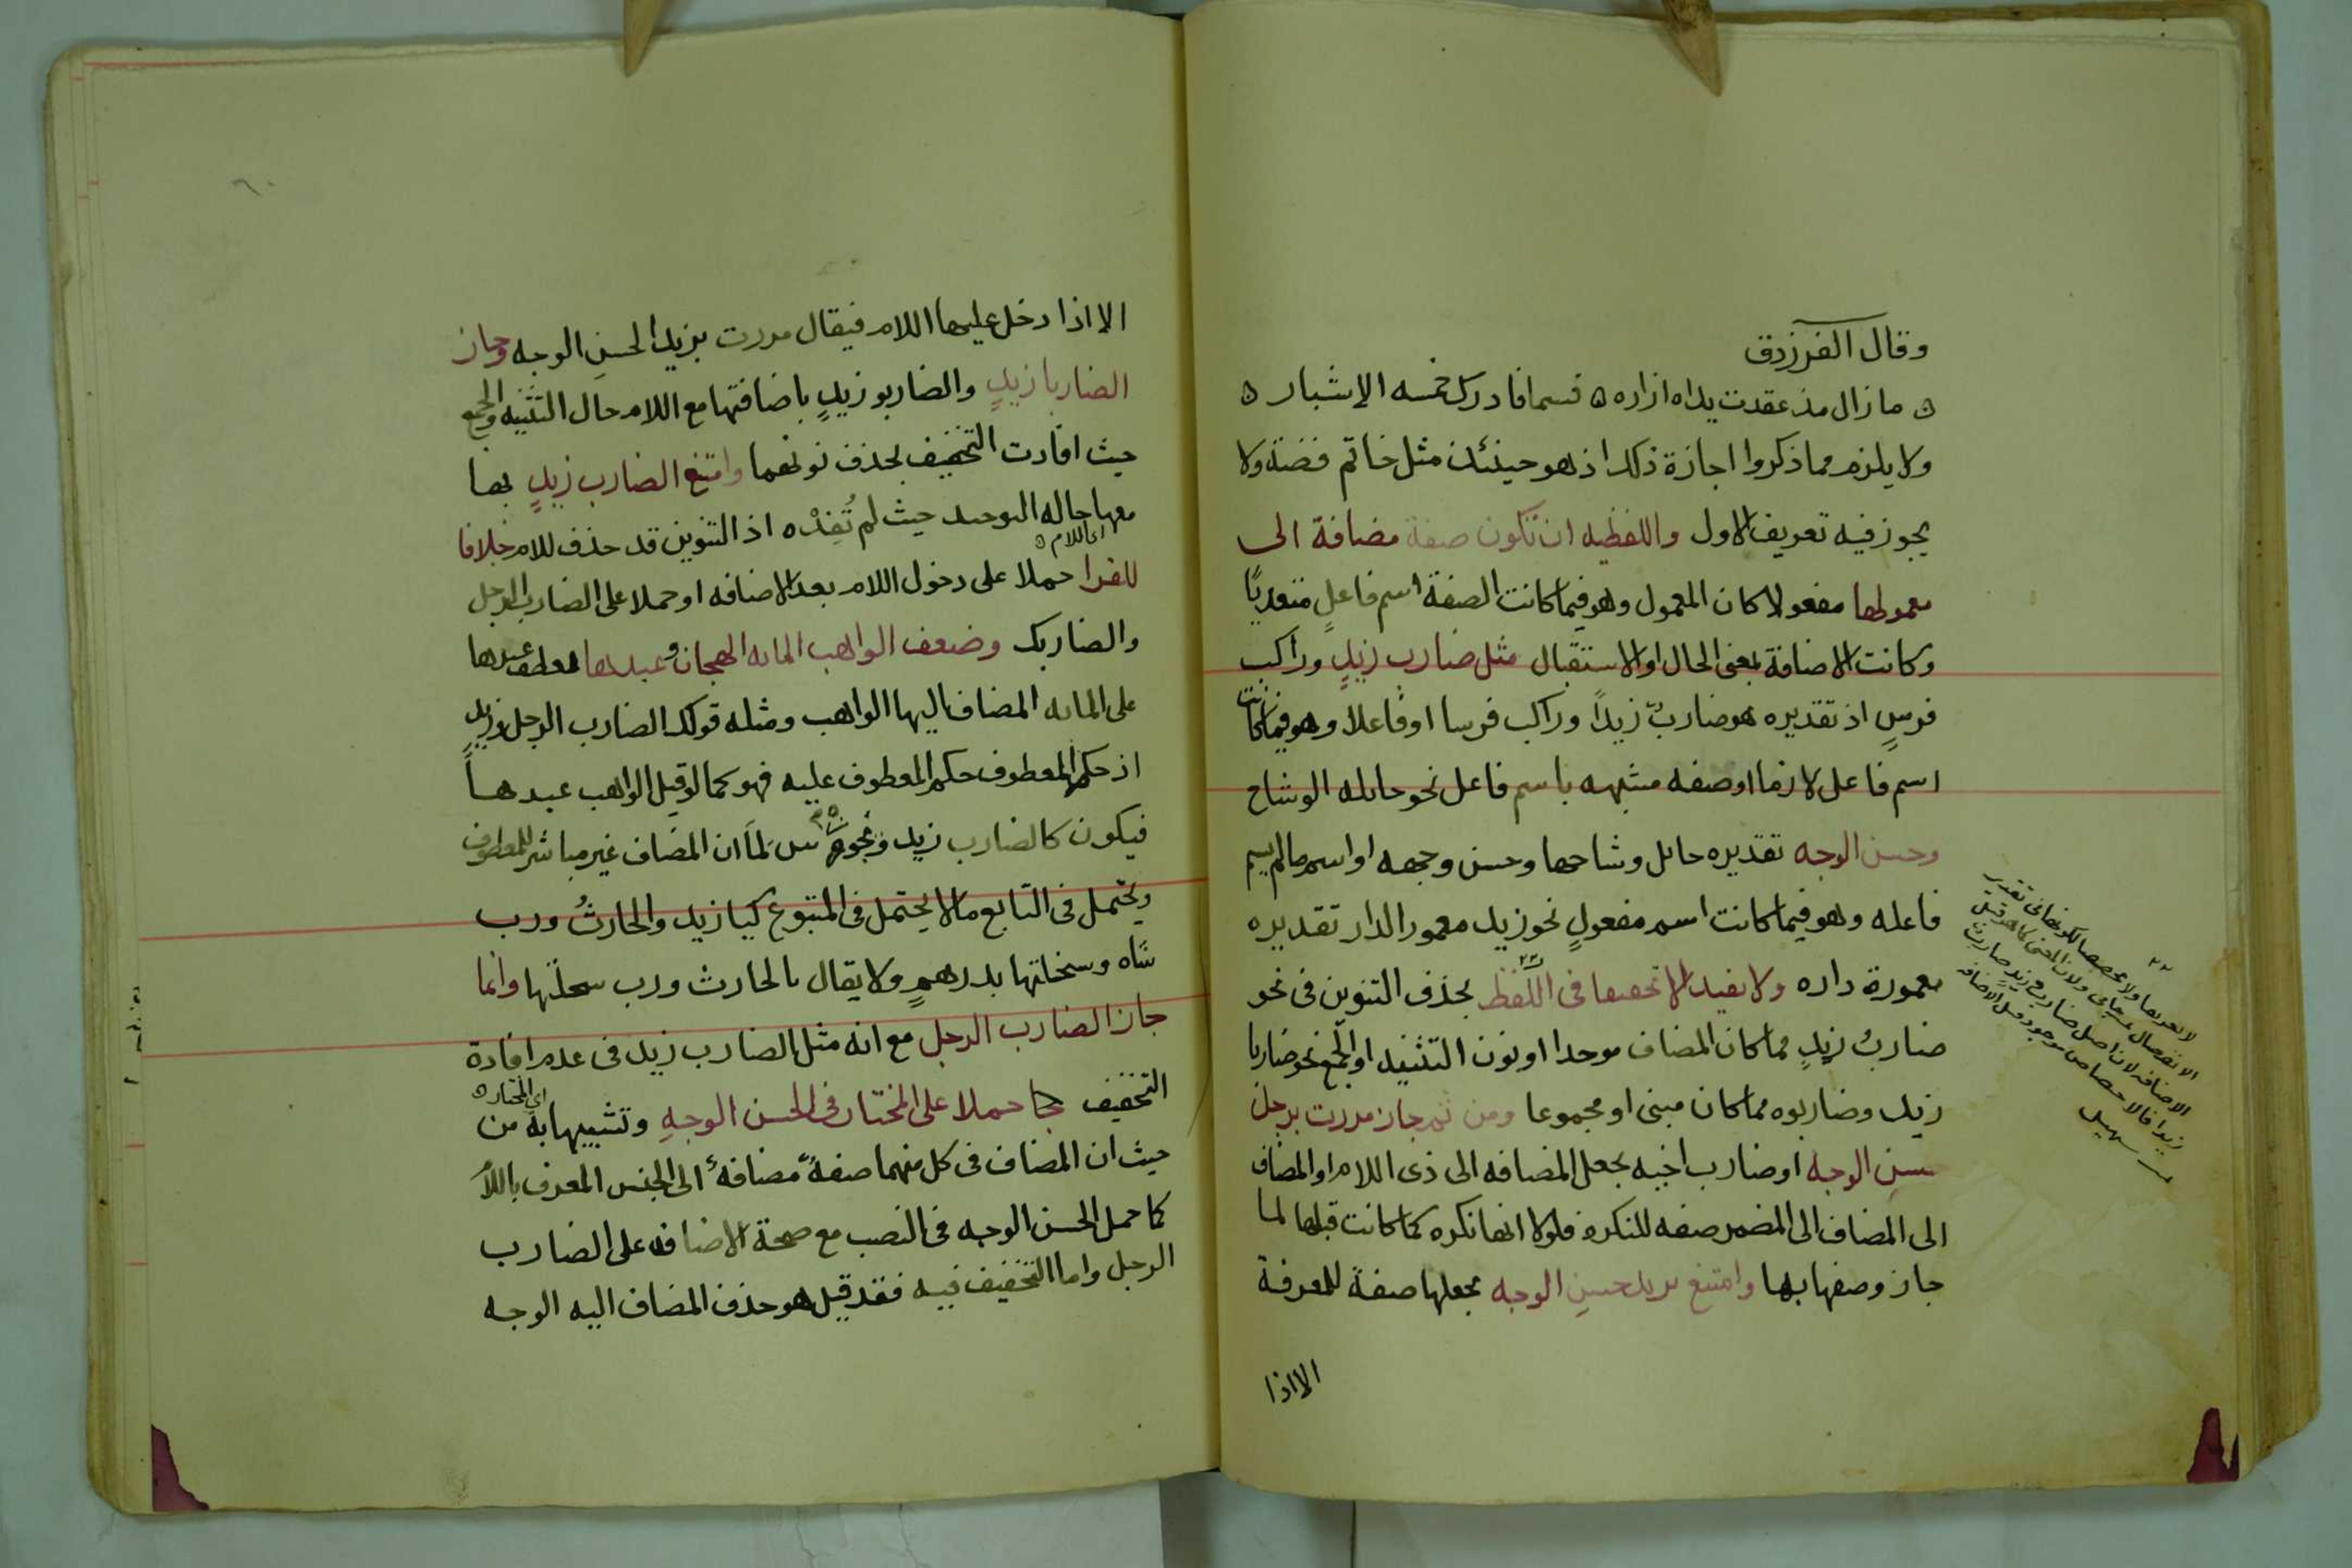 وقال الفرزدق
ما زال مذ عقدت يداه ازاره ه فسما فادرك خمسه الاشبار ه
ولا يلزم مما ذكروا اجازة ذلك اذ هو حينئذ مثل خاتم فضة ولا
يجوز فيه تعريف الاول واللفظيه ان تكون صفة مضافة الى
معمولها مفعولا كان المعمول وهو فيما كانت الصفة اسم فاعلٍ متعديًا
وكانت الاضافة بمعنى الحال او الاستقبال مثل ضارب زيدٍ وراكب
فرسٍ اذ تقديره هو ضاربٌ زيداً وراكب فرسا او فاعلا وهو فيما كانت
اسم فاعل لازما او صفه مشبهه باسم فاعل نحو حايله الوشاح
وحسن الوجه تقديره حايل وشاحها وحسن وجهه او اسم ما لم يسم
فاعله وهو فيما كانت اسم مفعولٍ نحو زيد معمور الدار تقديره
معمورة داره ولا يفيد الا تخفيفا فى اللفظ بحذف التنوين فى نحو
ضاربُ زيدٍ مما كان المضاف موحدا او نون التثنيه او الجمع نحو ضاربا
زيد وضاربوه مما كان مبنى او مجموعا ومن ثم جاز مررت برجل
حسنِ الوجه او ضارب اخيه بجعل المضافه الى ذى اللام او المضاف
الى المضاف الى المضمر صفه للنكره فلولا انها نكره كما كانت قبلها لما
جاز وصفها بها وامتنع بزيد حسنِ الوجه بجعلها صفةً للمعرفة
الا اذا
لا تعريفا ولا تخصيصا لكونها فى تقدير
الاضافه لان اصل ضارب زيد ضارب
زيدا فالاختصاص موجود قبل الاضافه
٦٠
الا اذا دخل عليها اللام فيقال مررت بزيد الحسنِ الوجه وجاز
الضاربا زيدٍ والضاربو زيدٍ باضافتها مع اللام حال التثنيه والجمع
حيث افادت التخفيف بحذف نونهما وامتنع الضارب زيدٍ بها
معها حاله التوحيد حيث لم تُفِدْه اذ التنوين قد حذف للام خلافا
اى اللام ه
للفرا حملا على دخول اللام بعد الاضافه او حملا على الضارب الرجل
والضاربك وضعف الواهب المائه الهجان وعبدها بعطف عبدها
على المائه المضاف اليها الواهب ومثله قولك الضارب الرجل وزيدٍ
اذ حكم المعطوف حكم المعطوف عليه فهو كما لو قيل الواهب عبدها
فيكون كالضارب زيد لمَا ان المضاف غير مباشر للمعطوف
ويحتمل فى التابع ما لا يحتمل فى المتبوع كيا زيد والحارثُ ورب
شاه وسخلتها بدرهمٍ ولا يقال يالحارث ورب سخلتها وانما
جاز الضارب الرجل مع انه مثل الضارب زيد فى عدم افادة
التخفيف حملا على المختار فى الحسن الوجهِ وتشبيها به من
اى المختار ه
حيث ان المضاف فى كل منهما صفةً مضافةً الى الجنس المعرف باللام
كما حمل الحسن الوجه فى النصب مع صحة الاضافه على الضارب
الرجل واما التخفيف فيه فقد قيل هو حذف المضاف اليه الوجه